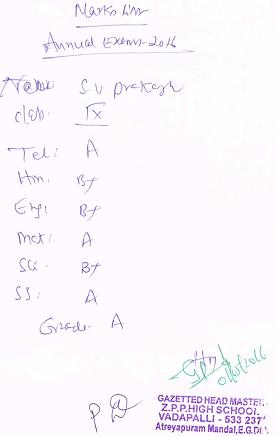 Marks List
Annual Exams-2016
Name: S.V Prakash
class: IX
Tel: A
Hin: B+
Eng: B+
Mat: A
Sci: B+
SS: A
Grade A
GAZETTED HEAD MASTER
Z.P.P.HIGH SCHOOL
VADAPALLI - 533 237
Atreyapuram Mandal, E.G.Dt.